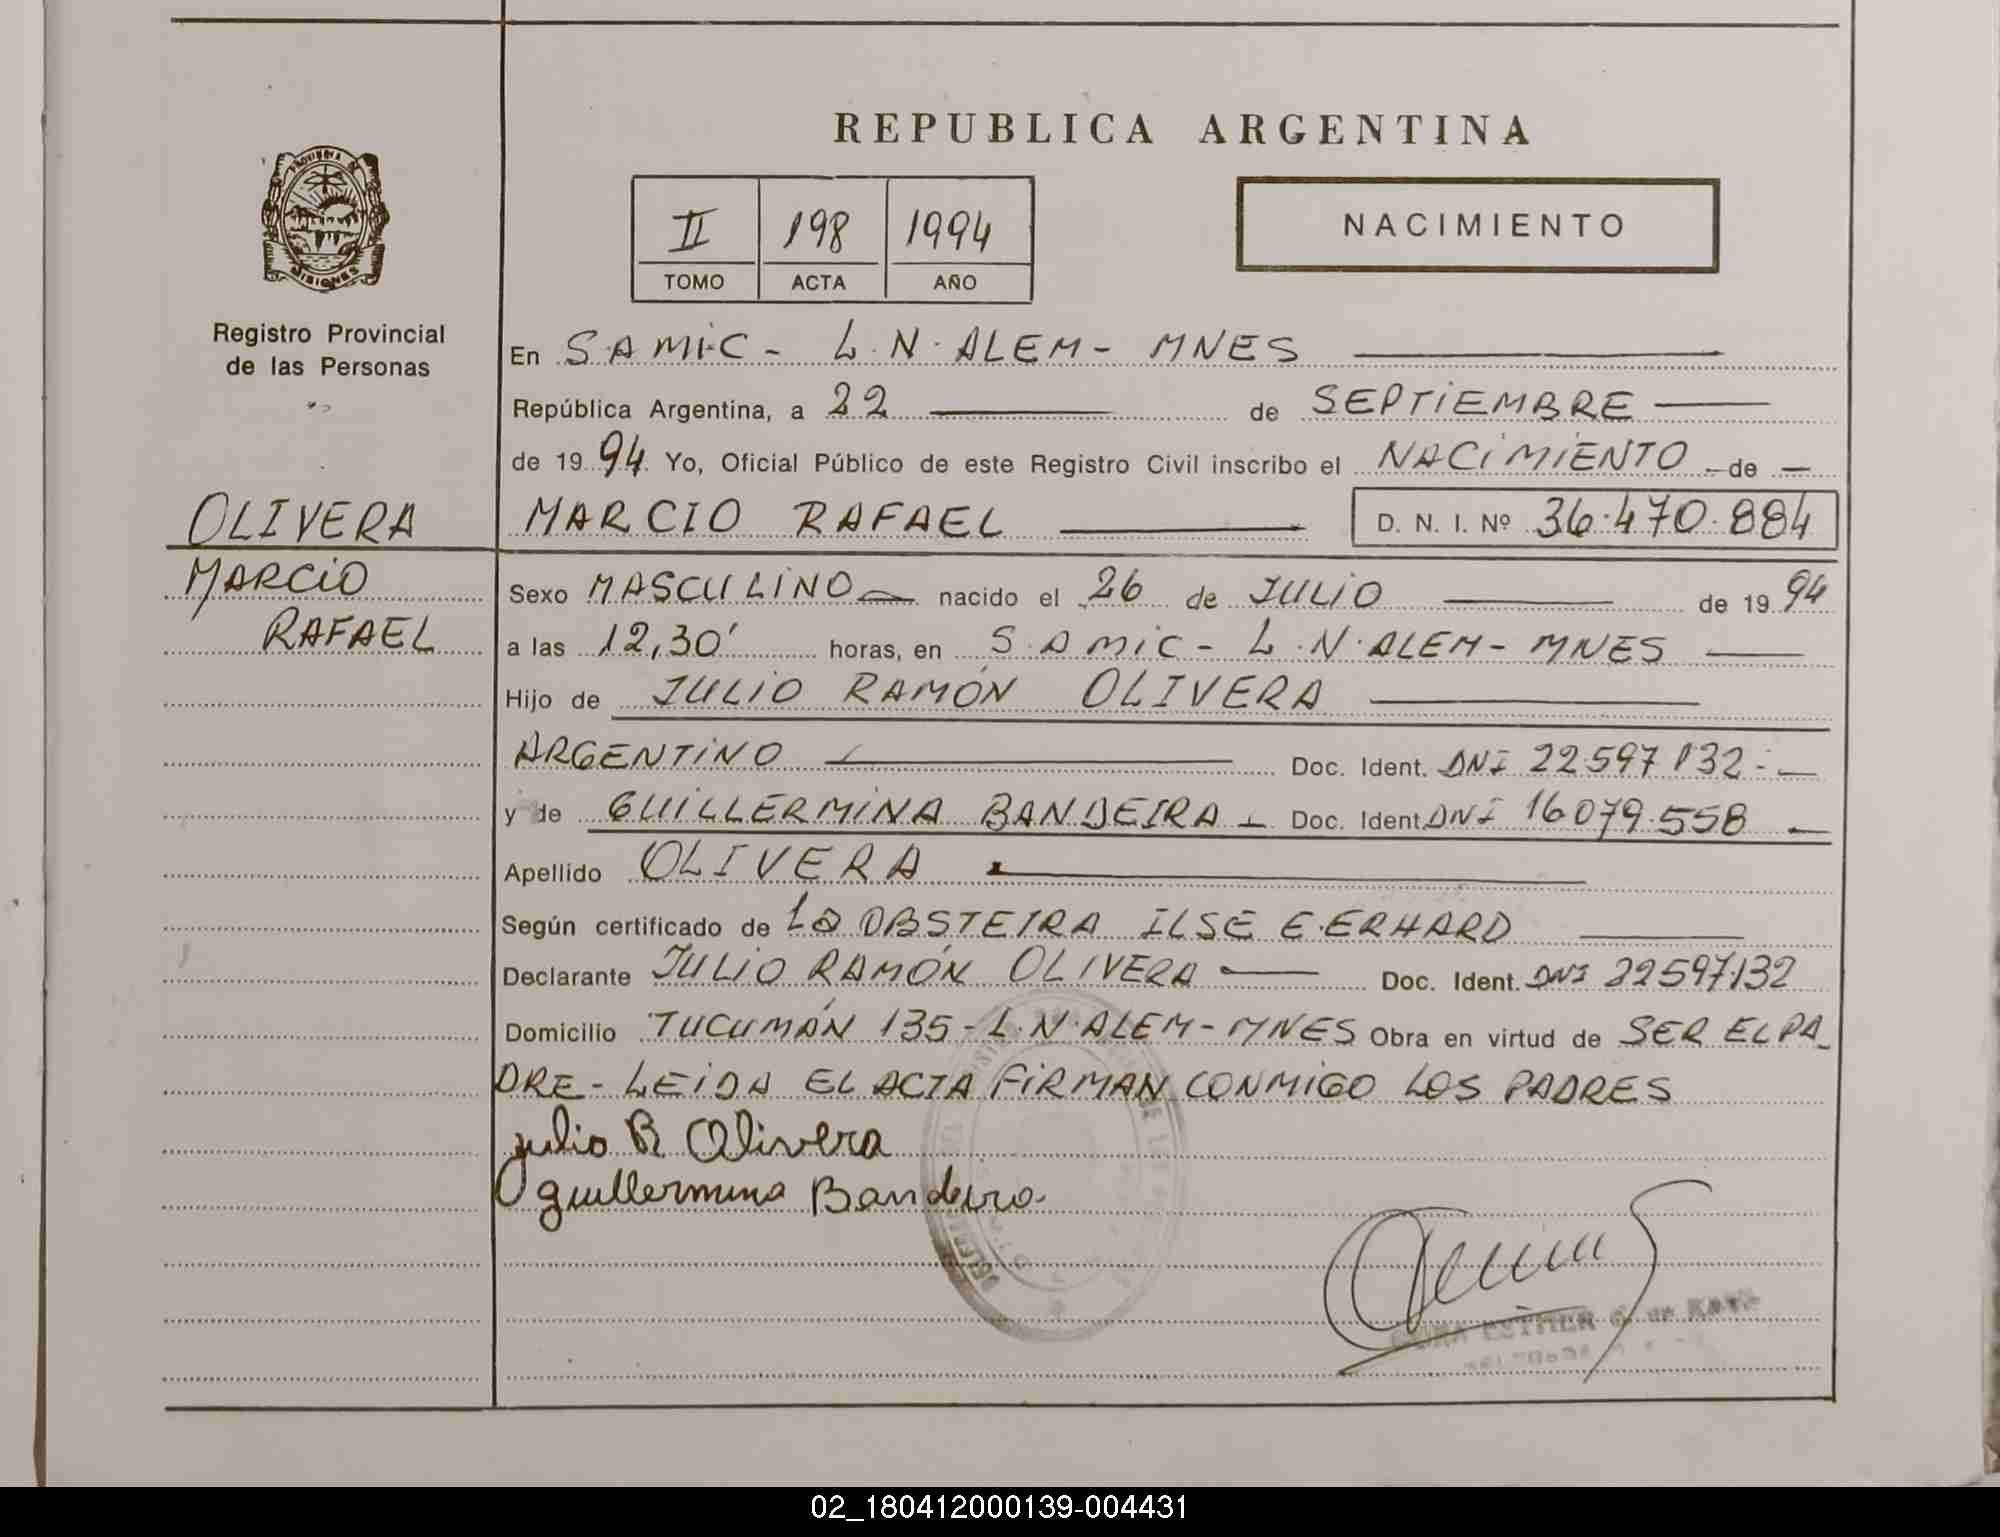 REPUBLICA ARGENTINA
PROVINCIA DE
MISIONES
Registro Provincial
de las Personas
II 198 1994
TOMO ACTA AÑO
NACIMIENTO
En S.A.M.I.C - L.N. ALEM - MNES
República Argentina, a 22 de SEPTIEMBRE
de 1994 Yo, Oficial Público de este Registro Civil inscribo el NACIMIENTO de
OLIVERA
MARCIO
RAFAEL
MARCIO RAFAEL D. N. I. Nº 36.470.884
Sexo MASCULINO nacido el 26 de JULIO de 1994
a las 12,30' horas, en S.A.M.I.C - L.N. ALEM - MNES
Hijo de JULIO RAMÓN OLIVERA
ARGENTINO Doc. Ident. DNI 22.597.132.-
y de GUILLERMINA BANDEIRA - Doc. Ident. DNI 16.079.558
Apellido OLIVERA
Según certificado de La OBSTETRA ILSE E. ERHARD
Declarante JULIO RAMÓN OLIVERA Doc. Ident. DNI 22597.132
Domicilio TUCUMÁN 135 - L.N. ALEM - MNES Obra en virtud de SER EL PA-
DRE - LEIDA EL ACTA FIRMAN CONMIGO LOS PADRES
Julio R Olivera
Guillermina Bandeira
ESTHER G. de
02_180412000139-004431